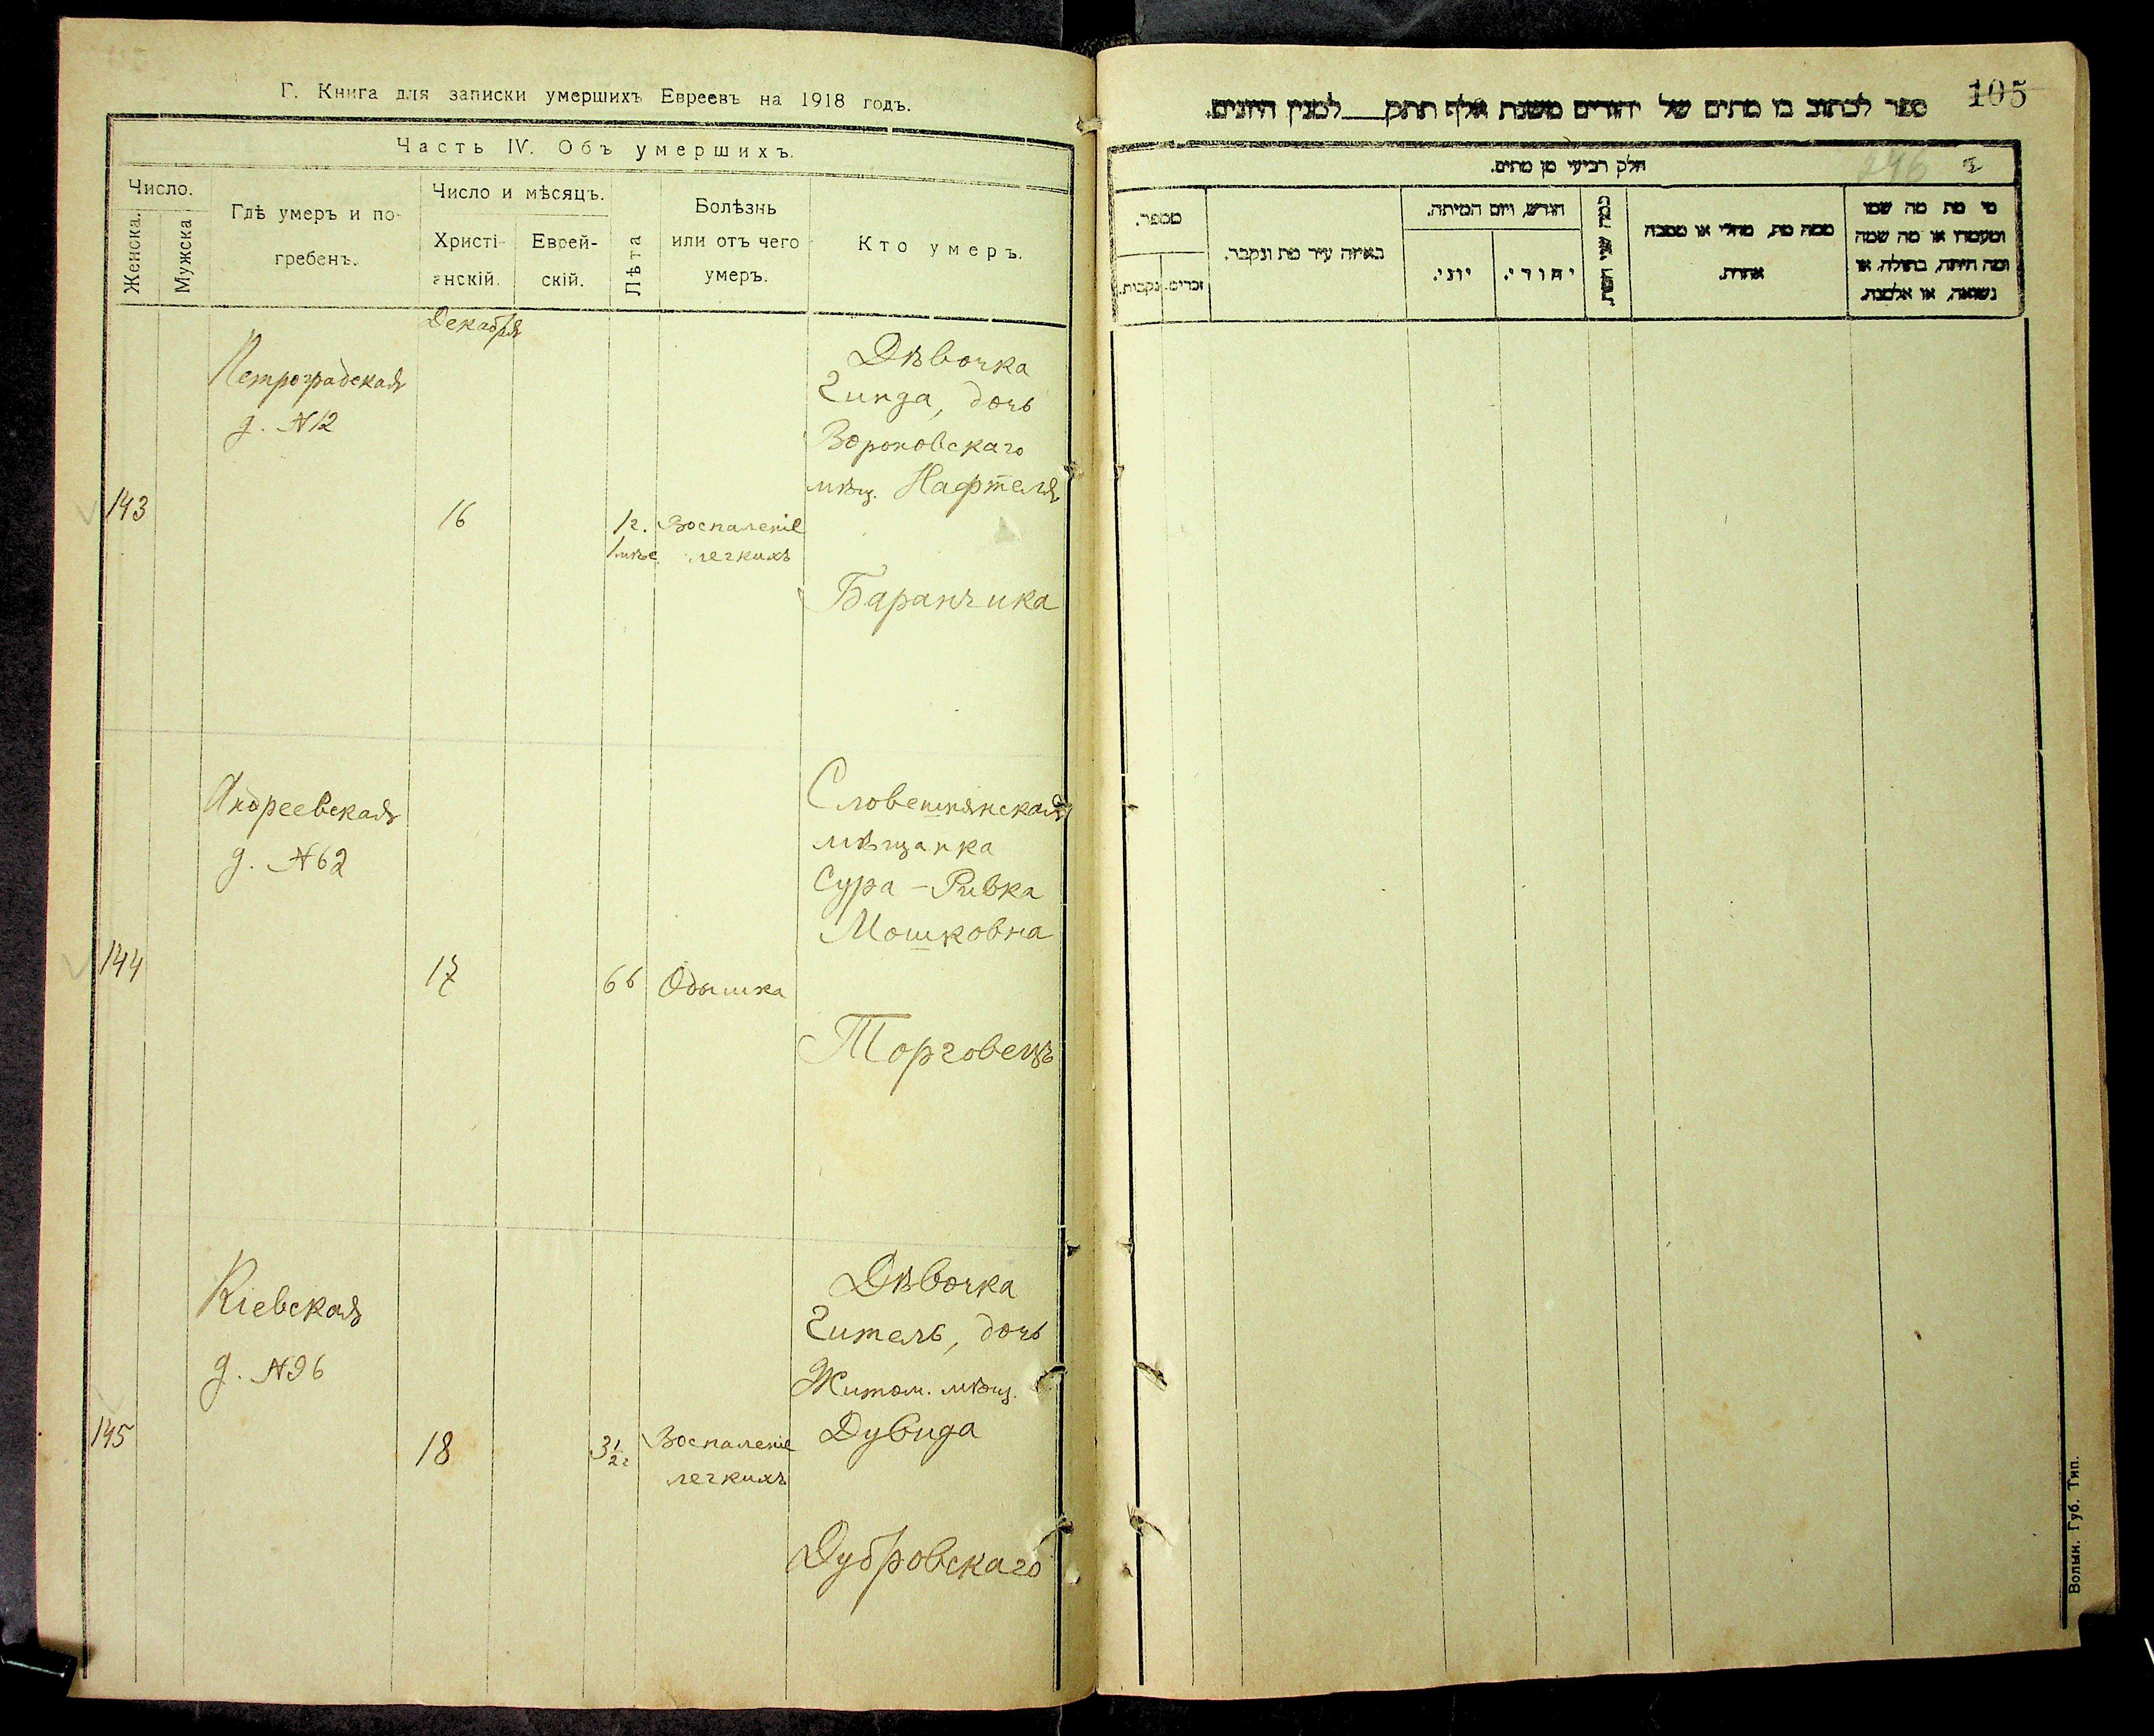 Г. Книга для записки умершихъ Евреевъ на 1918 годъ.
Часть IV. Объ умершихъ.
Число.
Женска.
Мужска
Гдѣ умеръ и по-
гребенъ.
Число и мѣсяцъ.
Христі-
анскій.
Еврей-
скій.
Лѣта
Болѣзнь
или отъ чего
умеръ.
Кто умеръ.
Декабря
143
Петроградская
д. №12
16
1г.
1мѣс.
Воспаленіе
легкихъ
Дѣвочка
Гинда, дочь
Вороновскаго
мѣщ. Нафтеля
Баранчика
144
Андреевская
д. №62
17
66
Одышка
Словешнянская
мѣщанка
Сура-Ривка
Мошковна
Торговецъ
145
Кіевская
д. №96
18
3½г
Воспаленіе
легкихъ
Дѣвочка
Гитель, дочь
Житом. мѣщ.
Дувида
Дубровскаго
105
ספר לכתוב בו מתים של יהודים משנת אלף תתק__ למנין היונים.
חלק רביעי מן מתים.
246
מספר.
זכרים.
נקבות.
באיזה עיר מת ונקבר.
חודש, ויום המיתה.
יוני.
יהודי.
כמה שני חייו.
ממה מת, מחלי או מסבה
אחרת.
מי מת מה שמו
ומעמדו או מה שמה
ומה היתה, בתולה, או
נשואה, או אלמנה.
Волын. Губ. Тип.